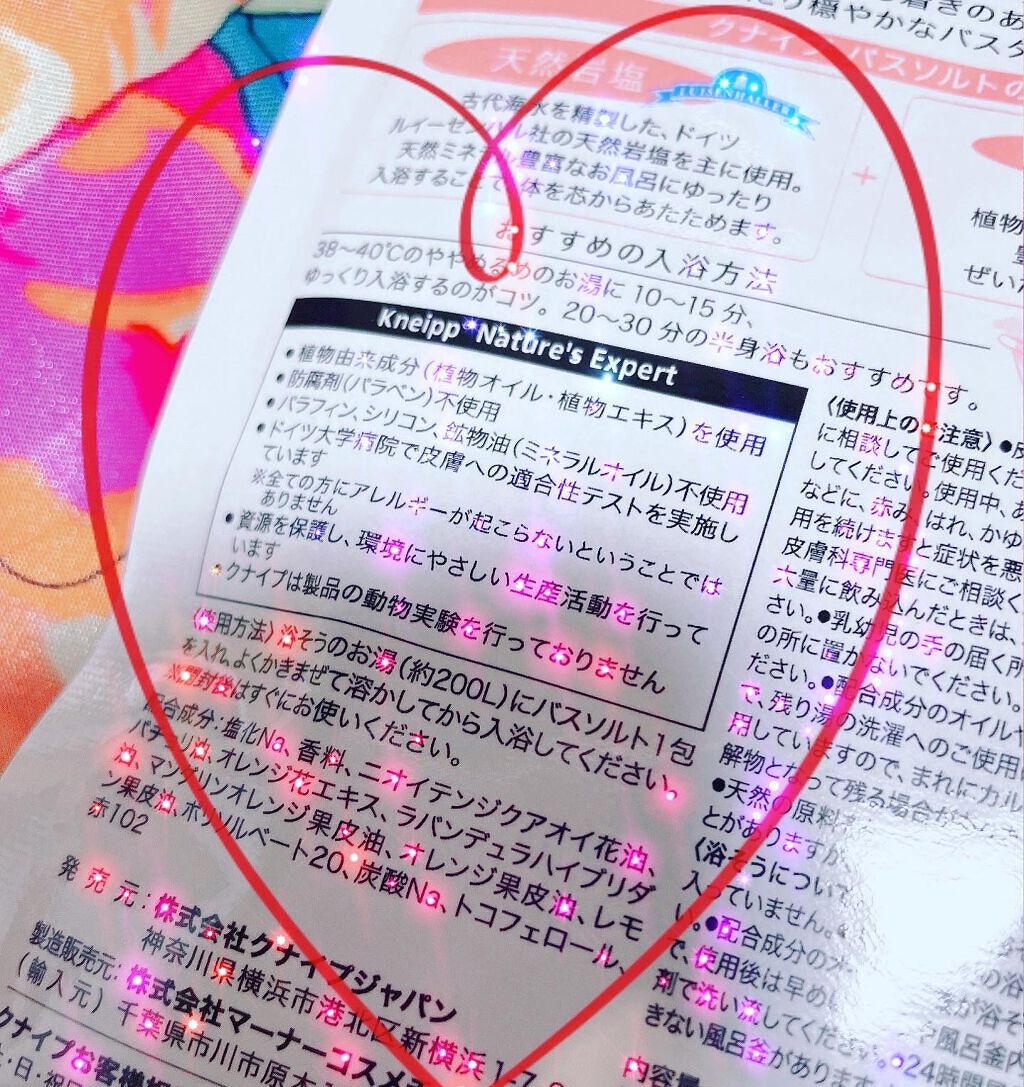 り穏やかなバスタ
クナイプ バスソルトの
天然岩塩
LUISENHALLER
古代海水を精製した、ドイツ
ルイーゼンハル社の天然岩塩を主に使用。
天然ミネラル豊富なお風呂にゆったり
入浴することで、体を芯からあたためます。
+
植物
ぜいた
おすすめの入浴方法
38〜40℃のややぬるめのお湯に 10〜15 分、
ゆっくり入浴するのがコツ。20〜30 分の半身浴もおすすめです。
Kneipp Nature's Expert
●植物由来成分(植物オイル・植物エキス)を使用
●防腐剤(パラベン)不使用
●パラフィン、シリコン、鉱物油(ミネラルオイル)不使用
●ドイツ大学病院で皮膚への適合性テストを実施し
ています
※全ての方にアレルギーが起こらないということでは
ありません
●資源を保護し、環境にやさしい生産活動を行って
います
●クナイプは製品の動物実験を行っておりません
〈使用方法〉浴そうのお湯(約200L)にバスソルト1包
を入れ、よくかきまぜて溶かしてから入浴してください。
※開封後はすぐにお使いください。
配合成分:塩化Na、香料、ニオイテンジクアオイ花油、
パチョリ油、オレンジ花エキス、ラバンデュラハイブリダ
油、マンダリンオレンジ果皮油、オレンジ果皮油、レモ
ン果皮油、ポリソルベート20、炭酸Na、トコフェロール、
赤102
発 売 元:株式会社クナイプジャパン
神奈川県横浜市港北区新横浜 1-7
製造販売元:株式会社マーナーコスメチ
(輸入元) 千葉県市川市原木
クナイプお客様
日・祝
〈使用上のご注意〉●皮
に相談してご使用くだ
してください。使用中、あ
などに、赤み、はれ、かゆ
用を続けますと症状を悪
皮膚科専門医にご相談く
大量に飲み込んだときは、
さい。●乳幼児の手の届く所
の所に置かないでください。
ださい。●配合成分のオイルや
で、残り湯の洗濯へのご使用は
用していますので、まれにカル
解物となって残る場合が
●天然の原料
とがありますが
〈浴そうについ
入っていません。
い。●配合成分の
で、使用後は早め
剤で洗い流してくださ
きない風呂釜があります。●24時間
内容量